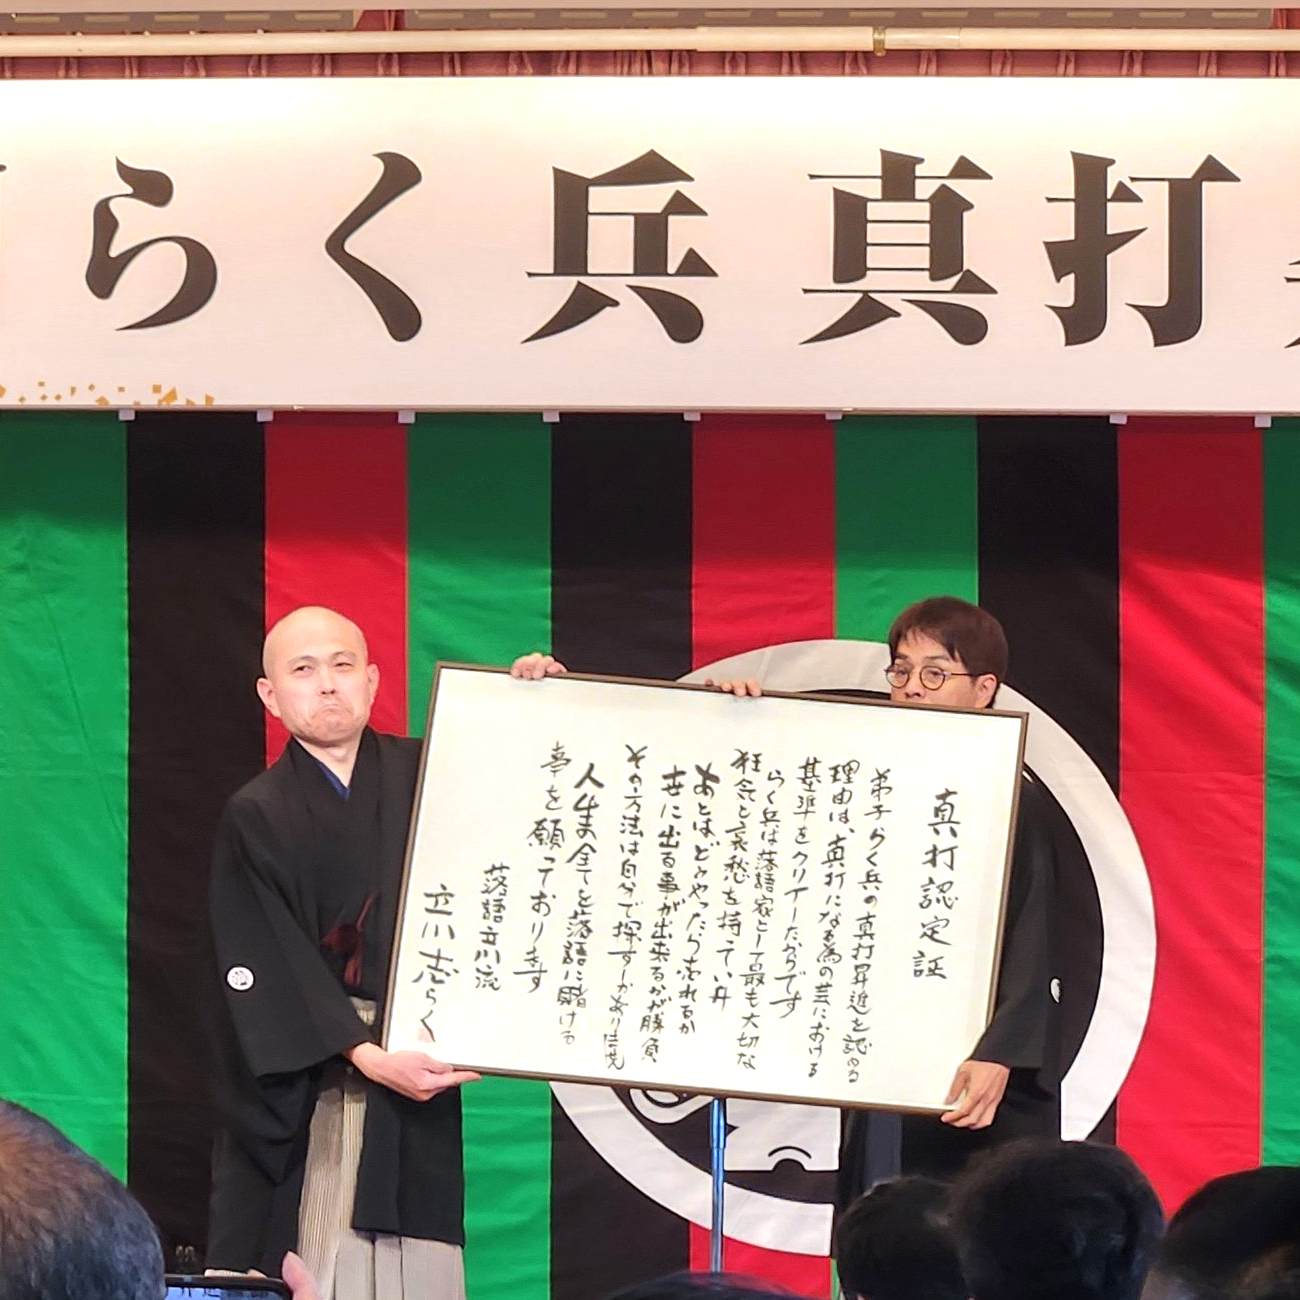 らく兵真打
真打認定証
弟子らく兵の真打昇進を認める
理由は、真打になる為の芸における
基準をクリアーたからです
らく兵は落語家として最も大切な
狂気と哀愁を持っています
あとはどうやったら売れるか
世に出る事が出来るかが勝負
その方法は自分で探すしかありません
人生全てを落語に賭ける
事を願っております
落語立川流
立川志らく